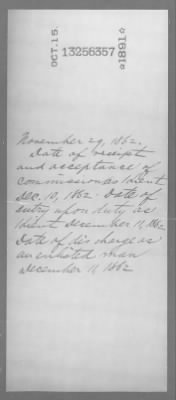 OCT. 15.
13256357
☆1891☆
November 29, 1862.
Date of receipt
and acceptance of
commission as Lieut
Dec. 10, 1862. Date of
entry upon duty as
Lieut December 11, 1862
Date of discharge as
an enlisted man
December 11, 1862